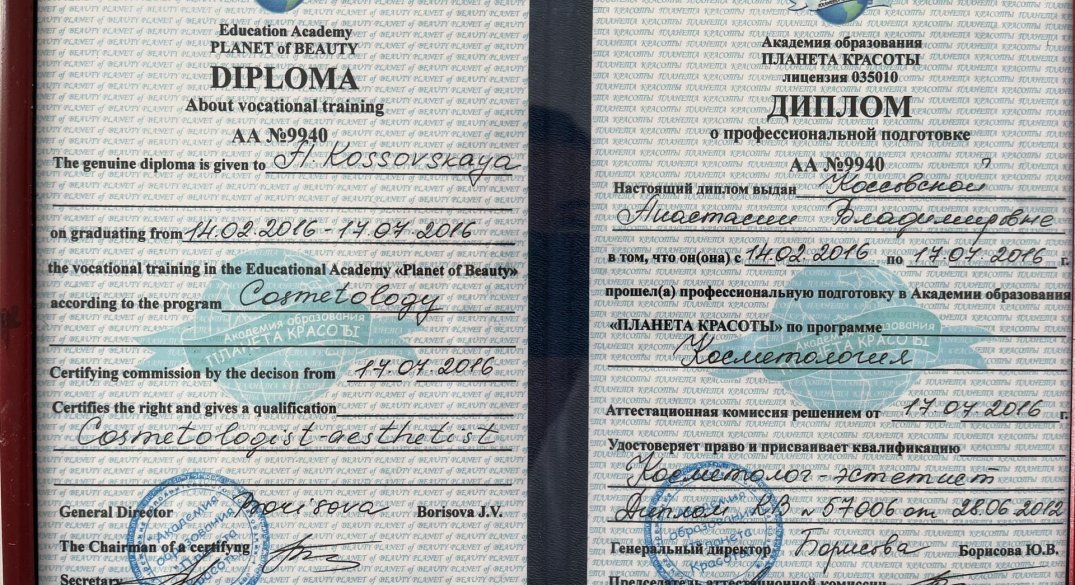 Education Academy
PLANET of BEAUTY
DIPLOMA
About vocational training
AA №9940
The genuine diploma is given to A. Kossovskaya
on graduating from 14.02.2016 - 17.07.2016
the vocational training in the Educational Academy «Planet of Beauty»
according to the program Cosmetology
Академия образования
ПЛАНЕТА КРАСОТЫ
Certifying commission by the decison from 17.07.2016
Certifies the right and gives a qualification
Cosmetologist-aesthetist
General Director Borisova Borisova J.V.
The Chairman of a certifyng
Secretary
Академия образования
ПЛАНЕТА КРАСОТЫ
лицензия 035010
ДИПЛОМ
о профессиональной подготовке
АА №9940
Настоящий диплом выдан Коссовской
Анастасии Владимировне
в том, что он(она) с 14.02.2016 по 17.07.2016 г.
прошел(а) профессиональную подготовку в Академии образования
«ПЛАНЕТА КРАСОТЫ» по программе
Косметология
Аттестационная комиссия решением от 17.07.2016 г.
Удостоверяет право и присваивает квалификацию
Косметолог-эстетист
Диплом КВ № 57006 от 28.06.2012
Генеральный директор Борисова Борисова Ю.В.
Председатель аттестационной комиссии